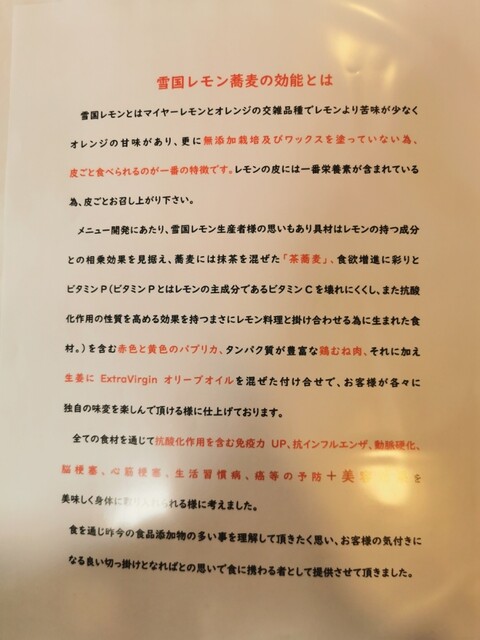 雪国レモン蕎麦の効能とは
雪国レモンとはマイヤーレモンとオレンジの交雑品種でレモンより苦味が少なく
オレンジの甘味があり、更に無添加栽培及びワックスを塗っていない為、
皮ごと食べられるのが一番の特徴です。レモンの皮には一番栄養素が含まれている
為、皮ごとお召し上がり下さい。
メニュー開発にあたり、雪国レモン生産者様の思いもあり具材はレモンの持つ成分
との相乗効果を見据え、蕎麦には抹茶を混ぜた「茶蕎麦」、食欲増進に彩りと
ビタミンP(ビタミンPとはレモンの主成分であるビタミンCを壊れにくくし、また抗酸
化作用の性質を高める効果を持つまさにレモン料理と掛け合わせる為に生まれた食
材。)を含む赤色と黄色のパプリカ、タンパク質が豊富な鶏むね肉、それに加え
生姜に ExtraVirgin オリーブオイルを混ぜた付け合せで、お客様が各々に
独自の味変を楽しんで頂ける様に仕上げております。
全ての食材を通じて抗酸化作用を含む免疫力 UP、抗インフルエンザ、動脈硬化、
脳梗塞、心筋梗塞、生活習慣病、癌等の予防+美を
美味しく身体にれられる様に考えました。
食を通じ昨今の食品添加物の多い事を理解して頂きたく思い、お客様の気付きに
なる良い切っ掛けとなればとの思いで食に携わる者として提供させて頂きました。